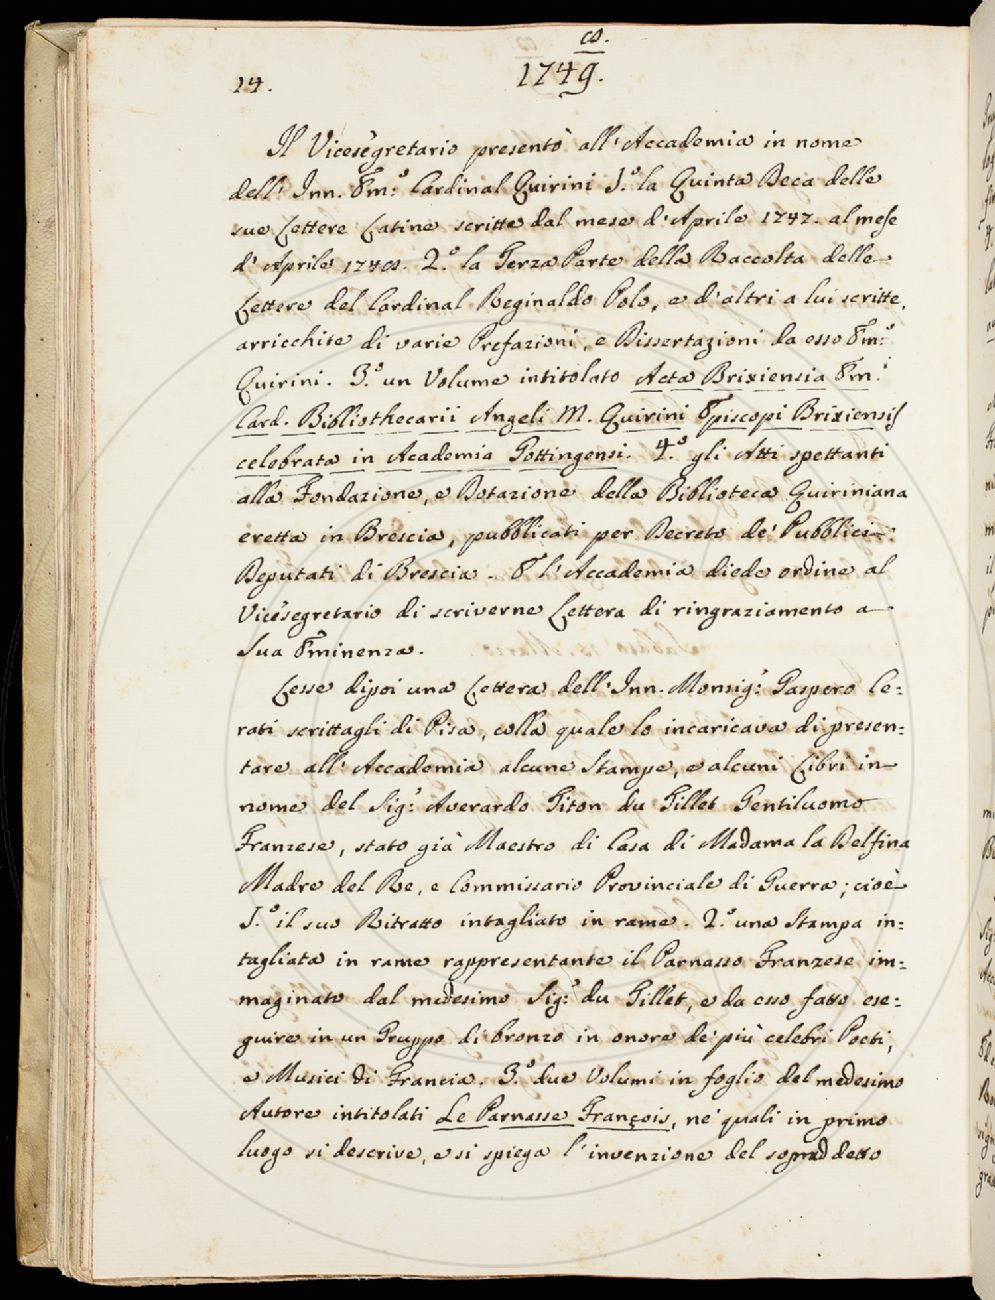 8.
14.
1749.
Il Vicesegretario presentò all'Accademia in nome
dell'Inn. Em:o Cardinal Quirini 1.o la Quinta Deca delle
sue Lettere Latine scritte dal mese d'Aprile 1747. al mese
d'Aprile 1748. 2.o la Terza Parte della Raccolta delle
Lettere del Cardinal Reginaldo Polo, e d'altri a lui scritte,
arricchite di varie Prefazioni, e Dissertazioni da esso Em:o
Quirini. 3.o un Volume intitolato Acta Brixiensia Em.i
Card. Bibliothecarii Angeli M. Quirini Episcopi Brixiensis
celebrata in Academia Gottingensi. 4.o gli Atti spettanti
alla Fondazione, e Dotazione della Biblioteca Quiriniana
eretta in Brescia, pubblicati per Decreto de' Pubblici
Deputati di Brescia. E l'Accademia diede ordine al
Vicesegretario di scriverne Lettera di ringraziamento a
Sua Eminenza.
Lesse dipoi una Lettera dell'Inn. Monsig.r Gaspero Ce:
rati scrittagli di Pisa, colla quale lo incaricava di presen:
tare all'Accademia alcune Stampe, e alcuni Libri in
nome del Sig.r Averardo Titon du Tillet Gentiluomo
Franzese, stato già Maestro di Casa di Madama la Delfina
Madre del Re, e Commissario Provinciale di Guerra; cioè
1.o il suo Ritratto intagliato in rame. 2.o una Stampa in:
tagliata in rame rappresentante il Parnasso Franzese im:
maginato dal medesimo Sig.r du Tillet, e da esso fatto ese:
guire in un Gruppo di bronzo in onore de' più celebri Poeti,
e Musici di Francia. 3.o due Volumi in foglio del medesimo
Autore intitolati Le Parnasse François, ne' quali in primo
luogo si descrive, e si spiega l'invenzione del sopraddetto